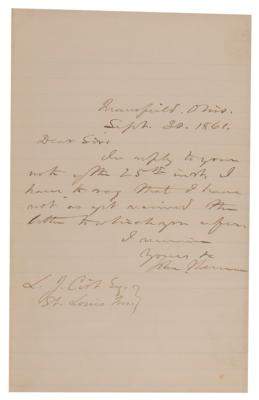 Mansfield, Ohio.
Sept. 30. 1861.
Dear Sir:
In reply to your
note of the 25th inst. I
have to say that I have
not as yet received the
letter to which you refer.
I remain
Yours &c
John Sherman
L. J. Cist Esq.
St. Louis